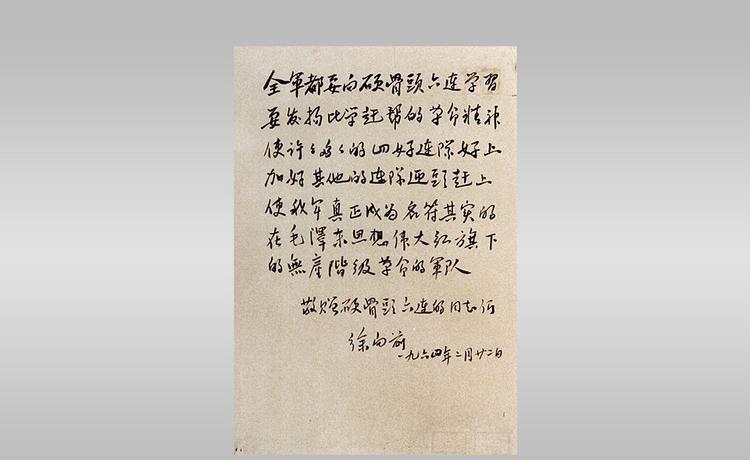 全軍都要向硬骨頭六连学習
要发揚比学赶帮的革命精神
使许许多多的四好连隊好上
加好其他的连隊迎头赶上
使我军真正成为名符其实的
在毛澤东思想伟大红旗下
的無産階级革命的軍队
敬赠硬骨頭六连的同志们
徐向前
一九六四年二月廿二日